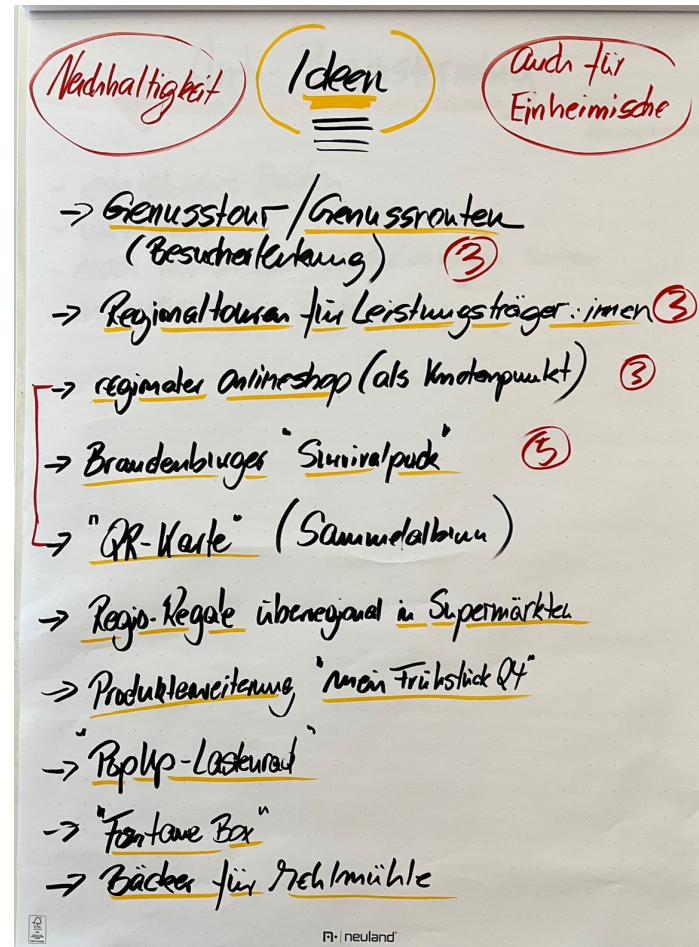 Nachhaltigkeit
Ideen
Auch für
Einheimische
-> Genusstour / Genussrouten
(Besucherlenkung) ③
-> Regionaltouren für Leistungsträger:innen ③
-> regionaler Onlineshop (als Knotenpunkt) ③
-> Brandenburger "Survivalpack" ⑤
-> "QR-Karte" (Sammelalbum)
-> Regio-Regale überregional in Supermärkten
-> Produkterweiterung "mein Frühstück Q4"
-> "PopUp-Lastenrad"
-> "Fontane Box"
-> Bäcker für Mehlmühle
neuland